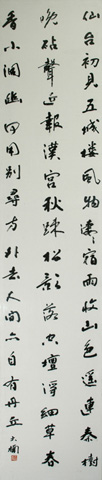 仙台初見五城楼風物凄凄宿雨收山色遥連秦樹
晚砧聲近報漢宮秋疎松影落空壇淨細草春
香小洞幽何用别尋方外去人间亦自有丹丘